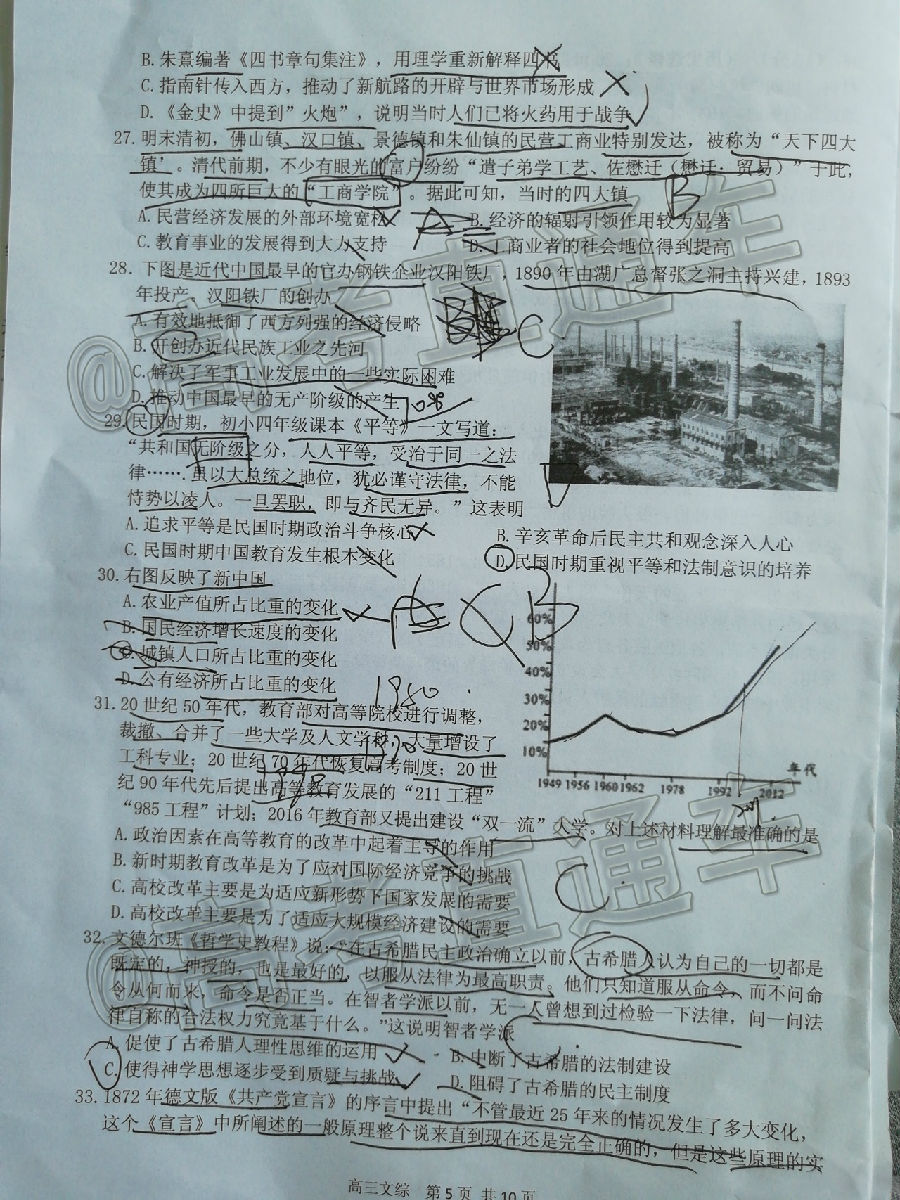 B. 朱熹编著《四书章句集注》，用理学重新解释四书
C. 指南针传入西方，推动了新航路的开辟与世界市场形成
D. 《金史》中提到"火炮"，说明当时人们已将火药用于战争
27. 明末清初，佛山镇、汉口镇、景德镇和朱仙镇的民营工商业特别发达，被称为"天下四大
镇"。清代前期，不少有眼光的富户纷纷"遣子弟学工艺、佐懋迁（懋迁：贸易）"于此，
使其成为四所巨大的"工商学院"。据此可知，当时的四大镇
A. 民营经济发展的外部环境宽松
B. 经济的辐射引领作用较为显著
C. 教育事业的发展得到大力支持
D. 工商业者的社会地位得到提高
A B
28. 下图是近代中国最早的官办钢铁企业汉阳铁厂，1890年由湖广总督张之洞主持兴建，1893
年投产。汉阳铁厂的创办
A. 有效地抵御了西方列强的经济侵略
B. 开创办近代民族工业之先河
C. 解决了军事工业发展中的一些实际困难
D. 推动中国最早的无产阶级的产生
C
29. 民国时期，初小四年级课本《平等》一文写道：
"共和国无阶级之分，人人平等，受治于同一之法
律……虽以大总统之地位，犹必谨守法律，不能
恃势以凌人。一旦罢职，即与齐民无异。"这表明
A. 追求平等是民国时期政治斗争核心
B. 辛亥革命后民主共和观念深入人心
C. 民国时期中国教育发生根本变化
D. 民国时期重视平等和法制意识的培养
30. 右图反映了新中国
A. 农业产值所占比重的变化
B. 国民经济增长速度的变化
C. 城镇人口所占比重的变化
D. 公有经济所占比重的变化
A C B
60%
50%
40%
30%
20%
10%
年代
1949 1956 1960 1962 1978 1992 2012
1980
31. 20世纪50年代，教育部对高等院校进行调整，
裁撤、合并了一些大学及人文学科，大量增设了
工科专业；20世纪70年代恢复高考制度；20世
纪90年代先后提出高等教育发展的"211工程"
"985工程"计划；2016年教育部又提出建设"双一流"大学。对上述材料理解最准确的是
A. 政治因素在高等教育的改革中起着主导的作用
B. 新时期教育改革是为了应对国际经济竞争的挑战
C. 高校改革主要是为适应新形势下国家发展的需要
D. 高校改革主要是为了适应大规模经济建设的需要
C
32. 文德尔班《哲学史教程》说："在古希腊民主政治确立以前，古希腊人认为自己的一切都是
既定的，神授的，也是最好的，以服从法律为最高职责。他们只知道服从命令，而不问命
令从何而来，命令是否正当。在智者学派以前，无一人曾想到过检验一下法律，问一问法
律自称的合法权力究竟基于什么。"这说明智者学派
A. 促使了古希腊人理性思维的运用
B. 中断了古希腊的法制建设
C. 使得神学思想逐步受到质疑与挑战
D. 阻碍了古希腊的民主制度
33. 1872年德文版《共产党宣言》的序言中提出"不管最近25年来的情况发生了多大变化，
这个《宣言》中所阐述的一般原理整个说来直到现在还是完全正确的，但是这些原理的实
高三文综 第5页 共10页
@高考直通车
@高考直通车